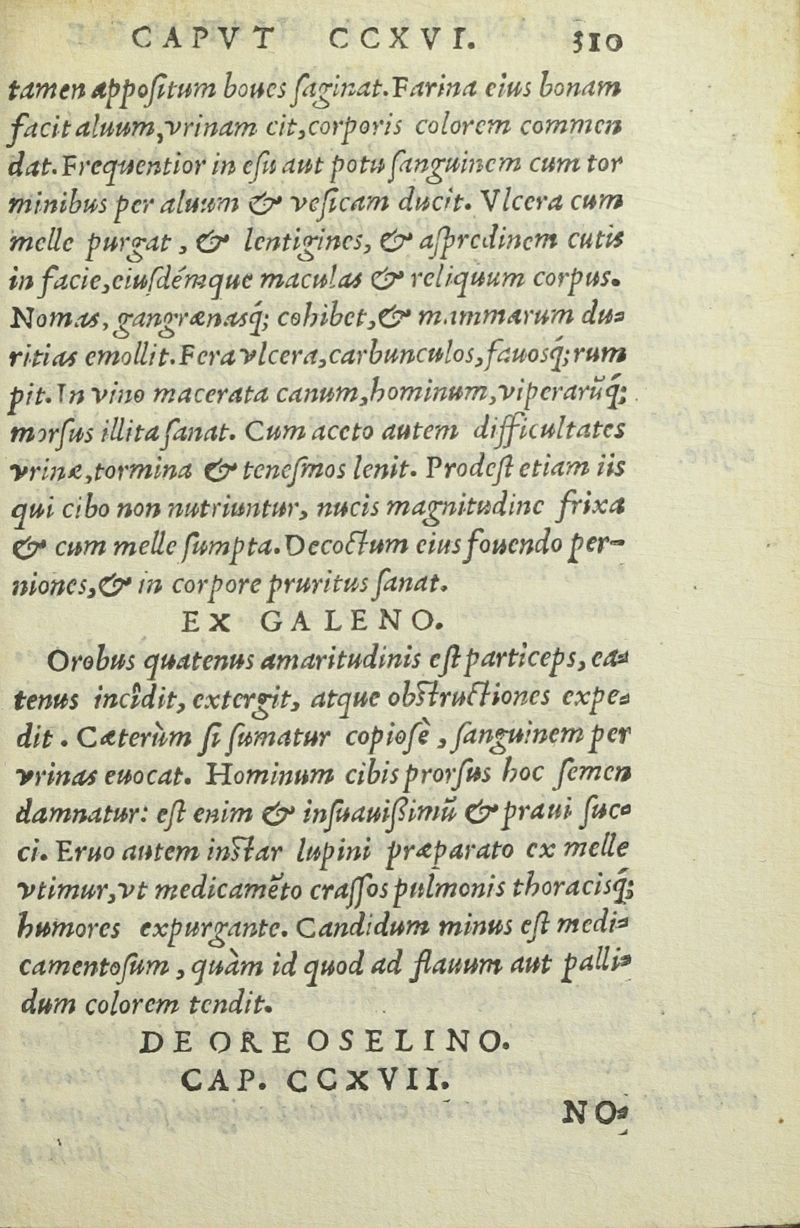 CAPVT CCXVI. 310
tamen appoſitum boues ſaginat. Farina eius bonam
facit aluum, vrinam cit, corporis colorem commen
dat. Frequentior in eſu aut potu ſanguinem cum tor
minibus per aluum & veſicam ducit. Vlcera cum
melle purgat, & lentigines, & aſpredinem cutis
in facie, eiuſdémque maculas & reliquum corpus.
Nomas, gangrænasq́; cohibet, & mammarum du-
ritias emollit. Fera vlcera, carbunculos, fauosq́; rum
pit. In vino macerata canum, hominum, viperarũq́;
morſus illita ſanat. Cum aceto autem difficultates
vrinæ, tormina & teneſmos lenit. Prodeſt etiam iis
qui cibo non nutriuntur, nucis magnitudine frixa
& cum melle ſumpta. Decoctum eius fouendo per-
niones, & in corpore pruritus ſanat.
EX GALENO.
Orobus quatenus amaritudinis eſt particeps, ea-
tenus incîdit, extergit, atque obſtructiones expe-
dit. Cæterùm ſi ſumatur copioſè, ſanguinem per
vrinas euocat. Hominum cibis prorſus hoc ſemen
damnatur: eſt enim & inſuauiſsimũ & praui ſuc-
ci. Eruo autem inſtar lupini præparato ex melle
vtimur, vt medicamẽto craſſos pulmonis thoracisq́;
humores expurgante. Candidum minus eſt medi-
camentoſum, quàm id quod ad flauum aut palli-
dum colorem tendit.
DE OREOSELINO.
CAP. CCXVII.
NO-